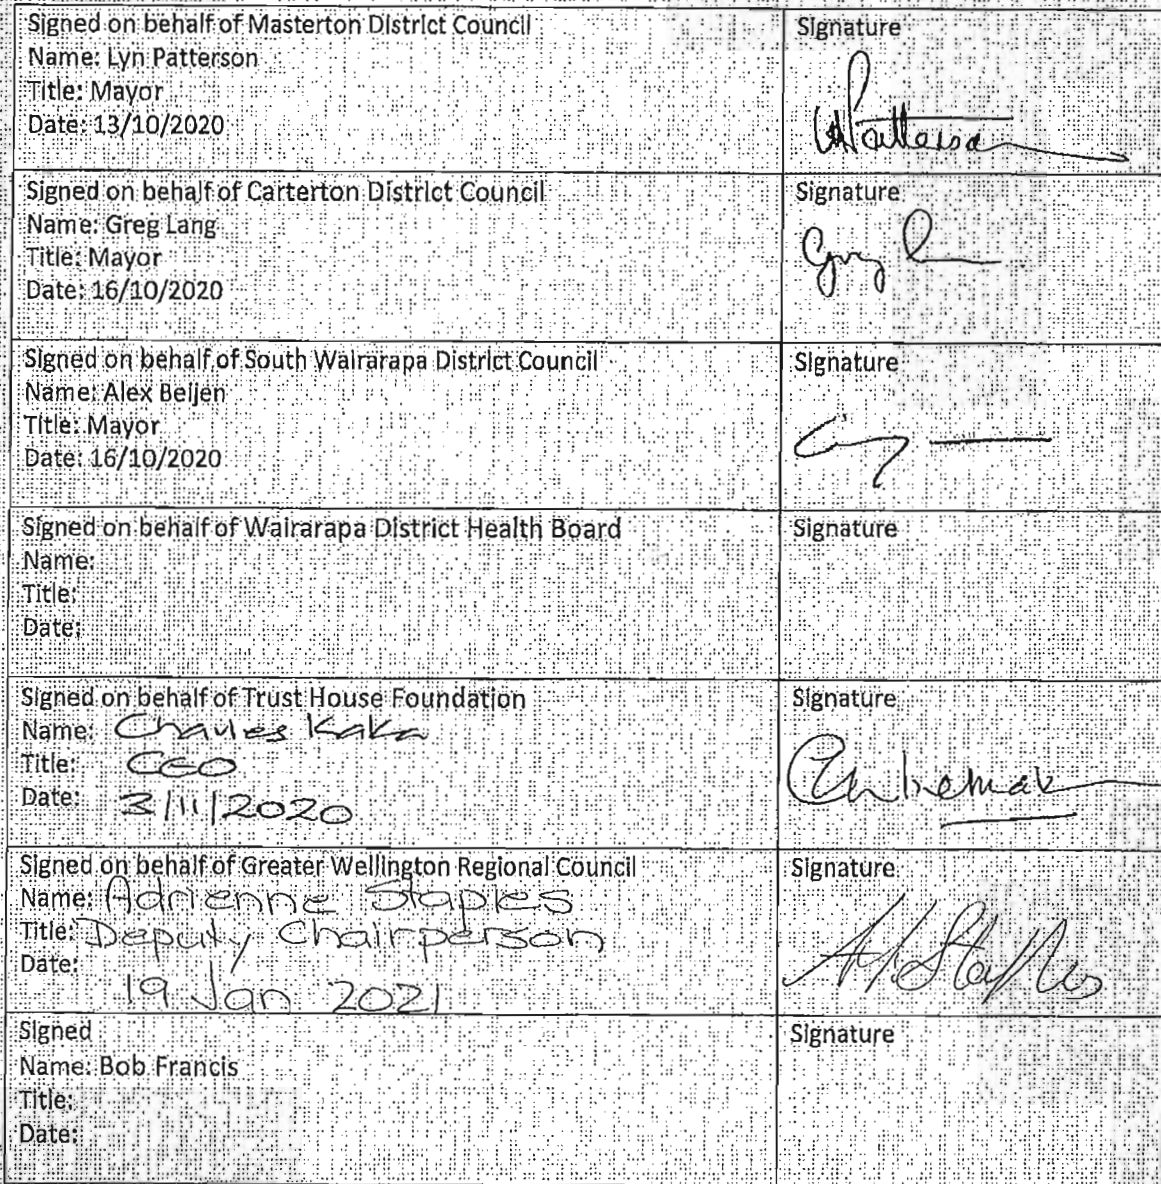 Signed on behalf of Masterton District Council
Name: Lyn Patterson
Title: Mayor
Date: 13/10/2020
Signature
Signed on behalf of Carterton District Council
Name: Greg Lang
Title: Mayor
Date: 16/10/2020
Signature
Signed on behalf of South Wairarapa District Council
Name: Alex Beijen
Title: Mayor
Date: 16/10/2020
Signature
Signed on behalf of Wairarapa District Health Board
Name:
Title:
Date:
Signature
Signed on behalf of Trust House Foundation
Name: Charles Kaka
Title: CEO
Date: 3/11/2020
Signature
Signed on behalf of Greater Wellington Regional Council
Name: Adrienne Staples
Title: Deputy Chairperson
Date:
19 Jan 2021
Signature
AJStaples
Signed
Name: Bob Francis
Title:
Date:
Signature